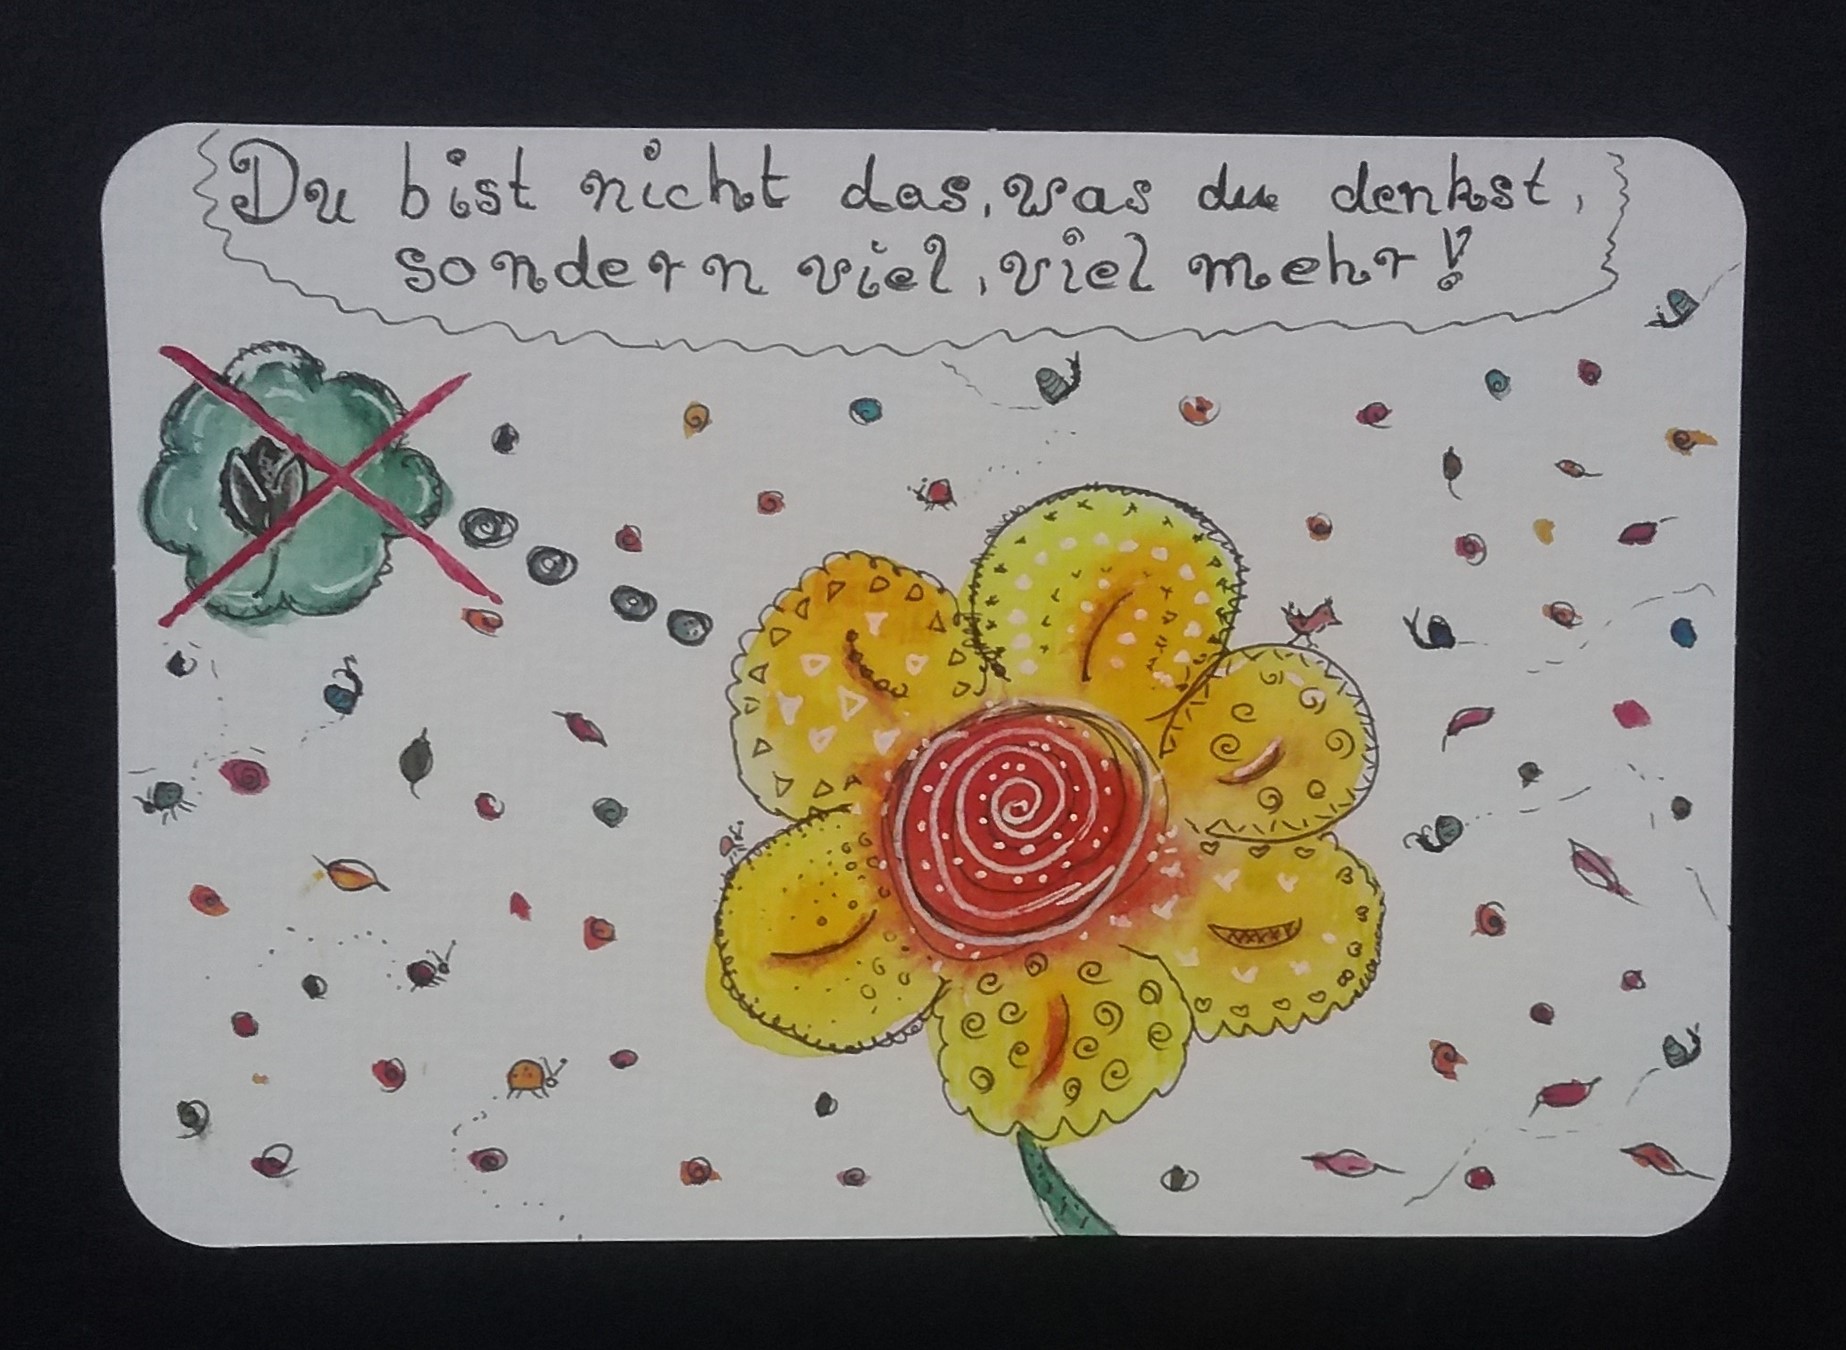 Du bist nicht das, was du denkst,
sondern viel, viel mehr!